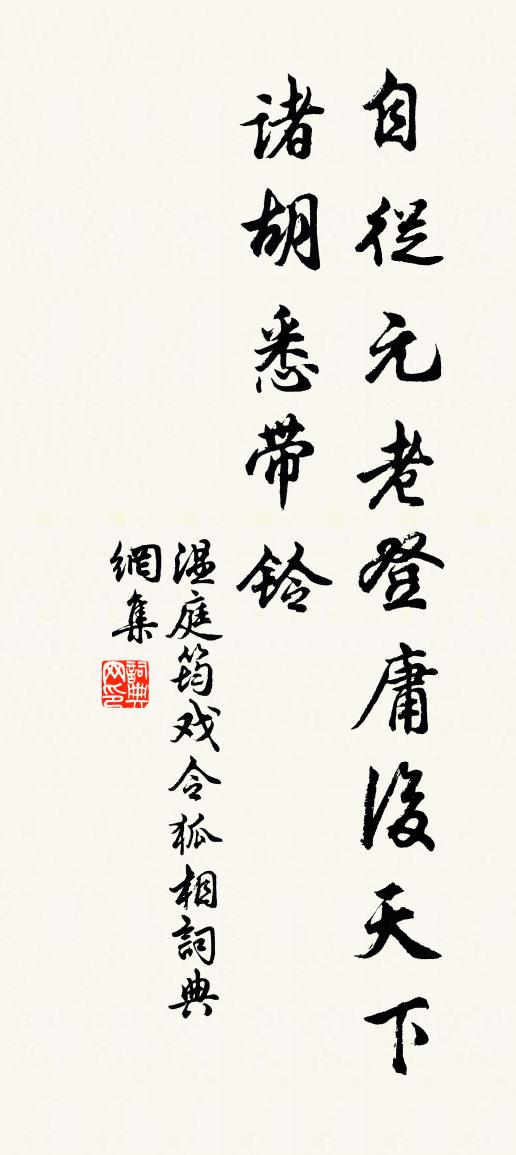 自從元老登庸後天下
諸胡悉带鈴
温庭筠戏令狐相詞典
網集
詞典
网印